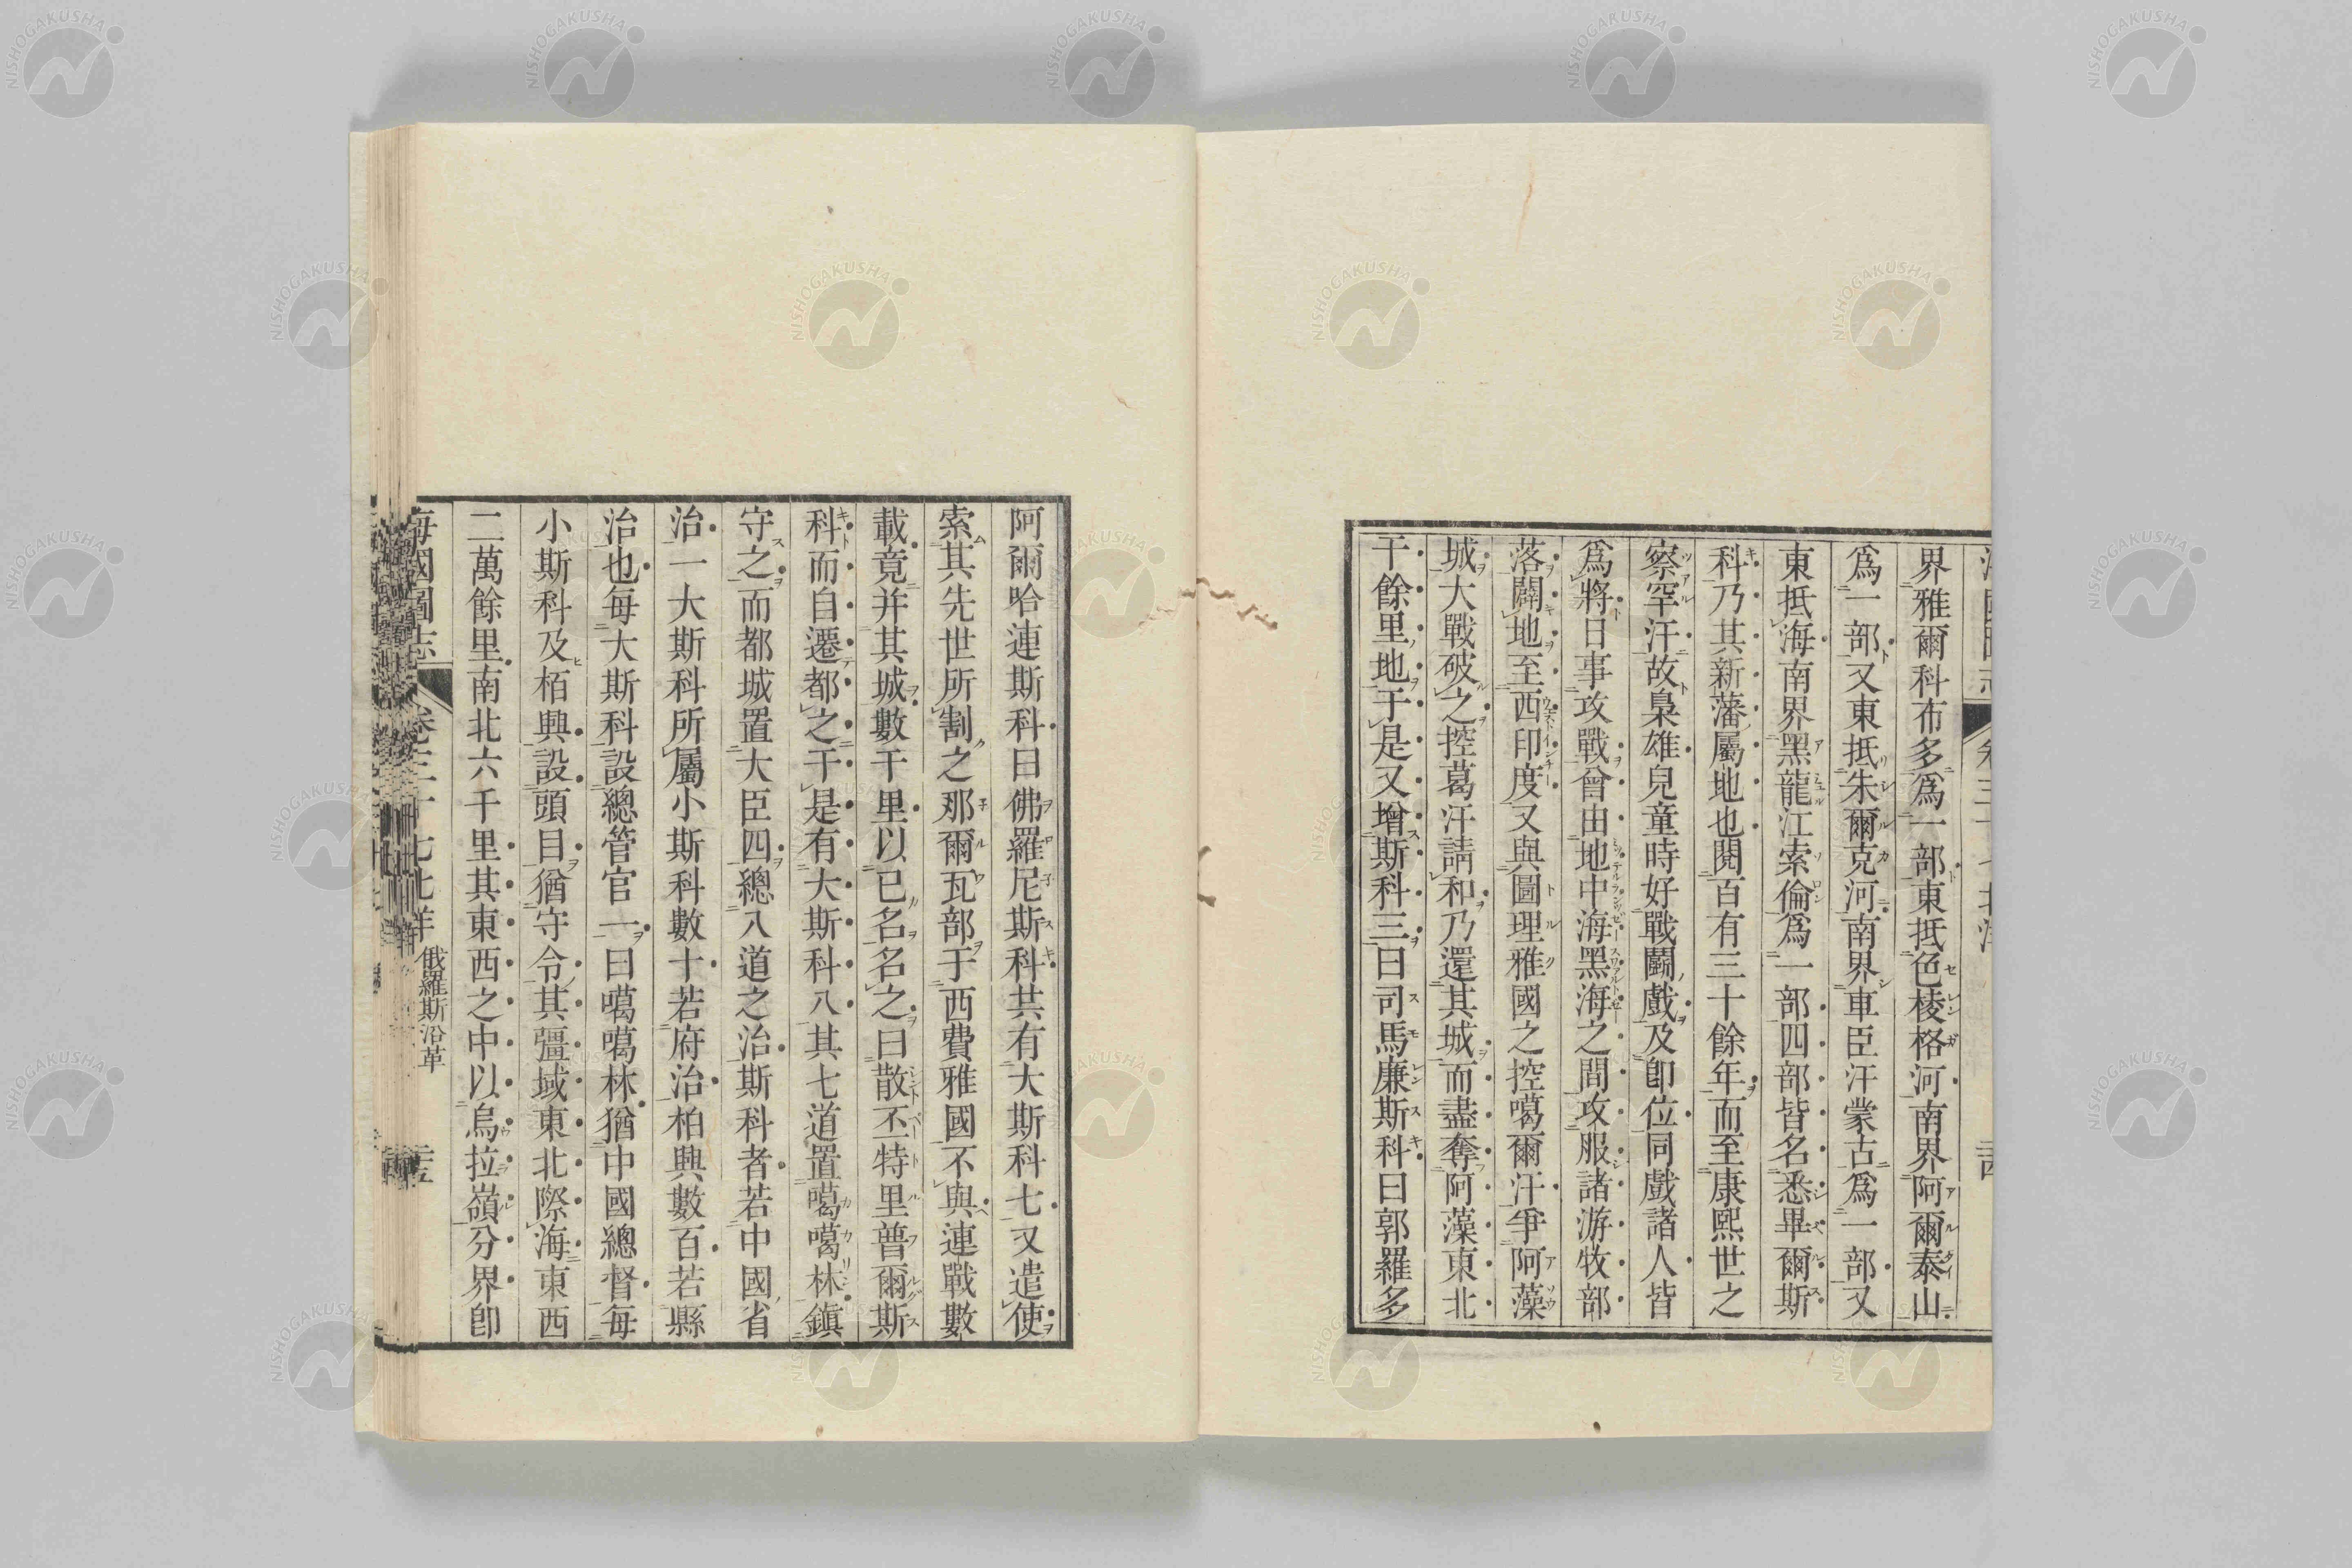 界雅爾科布多爲一部東抵色棱格河南界阿爾泰山
爲一部又東抵朱爾克河南界車臣汗蒙古爲一部又
東抵海南界黑龍江索倫爲一部四部皆名悉畢爾斯
科乃其新藩屬地也閱百有三十餘年而至康熙世之
察罕汗故梟雄兒童時好戰鬭戲及卽位同戲諸人皆
爲將日事攻戰曾由地中海黑海之間攻服諸游牧部
落闢地至西印度又與圖理雅國之控噶爾汗爭阿藻
城大戰破之控葛汗請和乃還其城而盡奪阿藻東北
千餘里地于是又增斯科三曰司馬廉斯科曰郭羅多
阿爾哈連斯科曰佛羅尼斯科共有大斯科七又遣使
索其先世所割之那爾瓦部于西費雅國不與連戰數
載竟并其城數千里以己名名之曰散丕特里普爾斯
科而自遷都之于是有大斯科八其七道置噶噶林鎮
守之而都城置大臣四總八道之治斯科者若中國省
治一大斯科所屬小斯科數十若府治柏興數百若縣
治也每大斯科設總管官一曰噶噶林猶中國總督每
小斯科及栢興設頭目猶守令其彊域東北際海東西
二萬餘里南北六千里其東西之中以烏拉嶺分界卽
海國圖志 卷三十七北洋 俄羅斯沿革